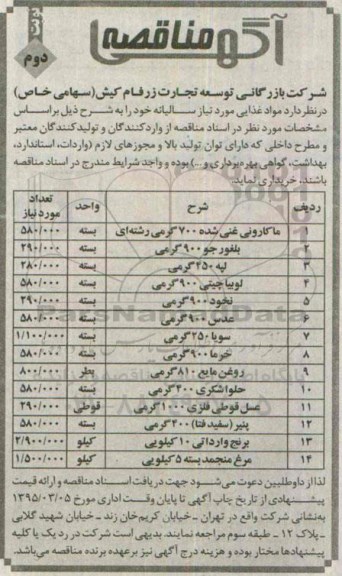 آگهی مناقصه
نوبت دوم
شرکت بازرگانی توسعه تجارت زرفام کیش (سهامی خاص)
در نظر دارد مواد غذایی مورد نیاز سالیانه خود را به شرح ذیل براساس
مشخصات مورد نظر در اسناد مناقصه از واردکنندگان و تولیدکنندگان معتبر
و مطرح داخلی که دارای توان تولید بالا و مجوزهای لازم (واردات، استاندارد،
بهداشت، گواهی بهره‌برداری و...) بوده و واجد شرایط مندرج در اسناد مناقصه
باشند، خریداری نماید.
ردیف شرح واحد تعداد مورد نیاز
۱ ماکارونی غنی شده ۷۰۰ گرمی رشته‌ای بسته ۵۸۰/۰۰۰
۲ بلغور جو ۹۰۰ گرمی بسته ۲۹۰/۰۰۰
۳ لپه ۴۵۰ گرمی بسته ۲۸۰/۰۰۰
۴ لوبیا چیتی ۹۰۰ گرمی بسته ۵۸۰/۰۰۰
۵ نخود ۹۰۰ گرمی بسته ۲۹۰/۰۰۰
۶ عدس ۹۰۰ گرمی بسته ۵۸۰/۰۰۰
۷ سویا ۲۵۰ گرمی بسته ۱/۱۰۰/۰۰۰
۸ خرما ۹۰۰ گرمی بسته ۵۸۰/۰۰۰
۹ روغن مایع ۸۱۰ گرمی بطر ۸۰۰/۰۰۰
۱۰ حلوا شکری ۴۰۰ گرمی بسته ۵۸۰/۰۰۰
۱۱ عسل قوطی فلزی ۱۰۰۰ گرمی قوطی ۲۹۰/۰۰۰
۱۲ پنیر (سفید فتا) ۴۰۰ گرمی بسته ۵۸۰/۰۰۰
۱۳ برنج وارداتی ۱۰ کیلویی کیلو ۲/۹۰۰/۰۰۰
۱۴ مرغ منجمد بسته ۵ کیلویی کیلو ۱/۵۰۰/۰۰۰
لذا از داوطلبین دعوت می‌شود جهت دریافت اسناد مناقصه و ارائه قیمت
پیشنهادی از تاریخ چاپ آگهی تا پایان وقت اداری مورخ ۱۳۹۵/۰۳/۰۵
به نشانی شرکت واقع در تهران ـ خیابان کریم‌خان زند ـ خیابان شهید گلابی
ـ پلاک ۱۲ ـ طبقه سوم مراجعه نمایند. بدیهی است شرکت در رد یک یا کلیه
پیشنهادها مختار بوده و هزینه درج آگهی نیز برعهده برنده مناقصه می‌باشد.